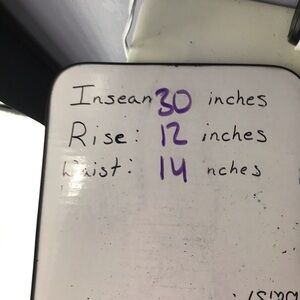 Insean 30 inches
Rise: 12 inches
Waist: 14 nches